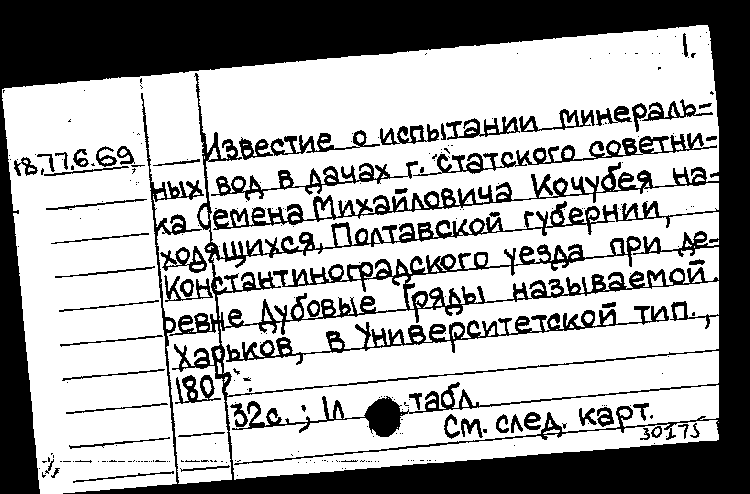 1.
18.77.6.69
Известие о испытании минераль-
ных вод в дачах г. статского советни-
ка Семена Михайловича Кочубея на-
ходящихся, Полтавской губернии,
Константиноградского уезда при де-
ревне Дубовые Гряды называемой.
Харьков, в Университетской тип.,
1807.
32с.; 1л табл.
См. след. карт.
30175